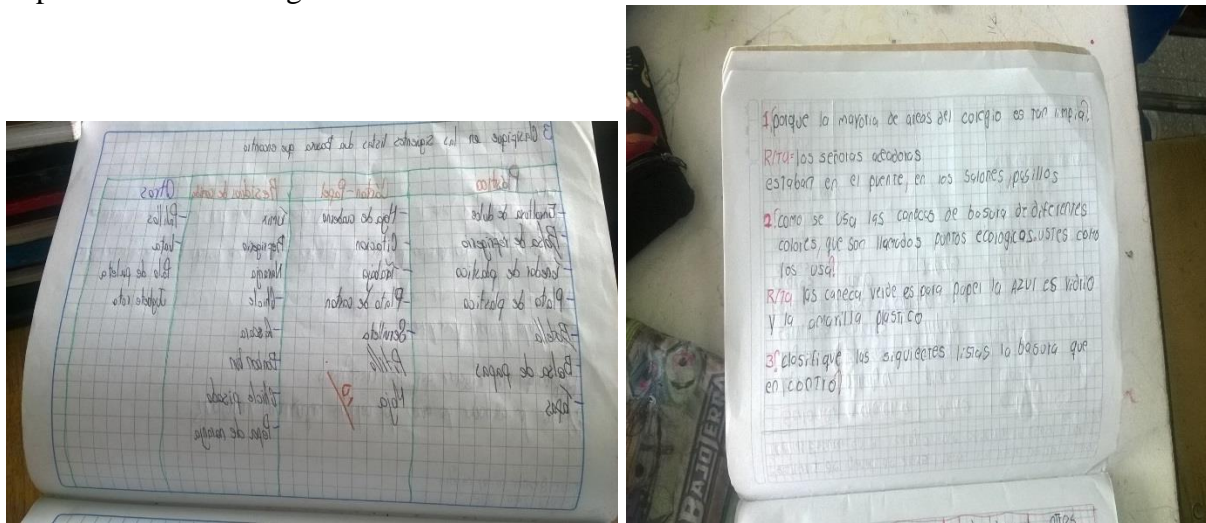 3 Clasifique en las siguientes listas la basura que encontro
Plastico
Carton-Papel
Residuo de comida
Otros
-Envoltura de dulce
-Hoja de cuaderno
-Palillos
-Bolsa de refrigerio
-Citacion
-Refrigerio
-Tenedor de plastico
-Trabajo
-Naranja
-Palo de paleta
-Plato de plastico
-Plato de carton
-Chicle
-Botella
-Servilleta
-Bolsa de papas
-Tapas
Hoja
-Chicle pisado
-Pepa de naranja
1¿porque la mayoria de areas del colegio es tan limpia?
R/Ta=las señoras aseadoras
estaban en el puente, en los salones, pasillos
2¿como se usa las canecas de basura de diferentes
colores, que son llamados puntos ecologicos.ustes como
los usa?
R/Ta las caneca verde es para papel la AZUl es vidrio
y la amarilla plastico
3¿clasifique las siguietes listas la basura que
en contro?
BAJOTERRA
otros